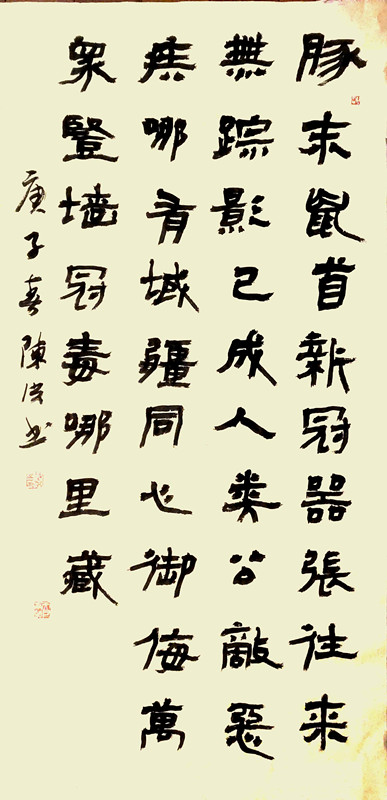 豚末鼠首新冠器張往来
無踪影已成人类公敵惡
疾哪有域疆同心御侮萬
眾豎墙冠毒哪里藏
庚子春陳书